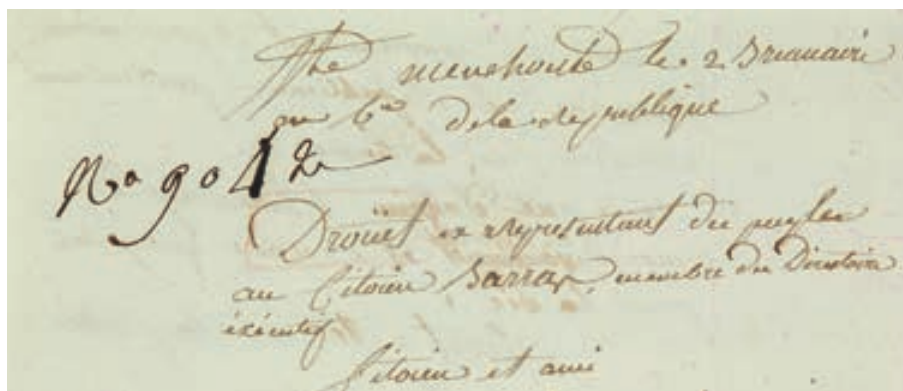 Ste menehould le 2 Brumaire
an 6e de la republique
No 9042
Drouet ex representant du peuple
au Citoien Barras, membre du Directoire
exécutif
Citoien et ami